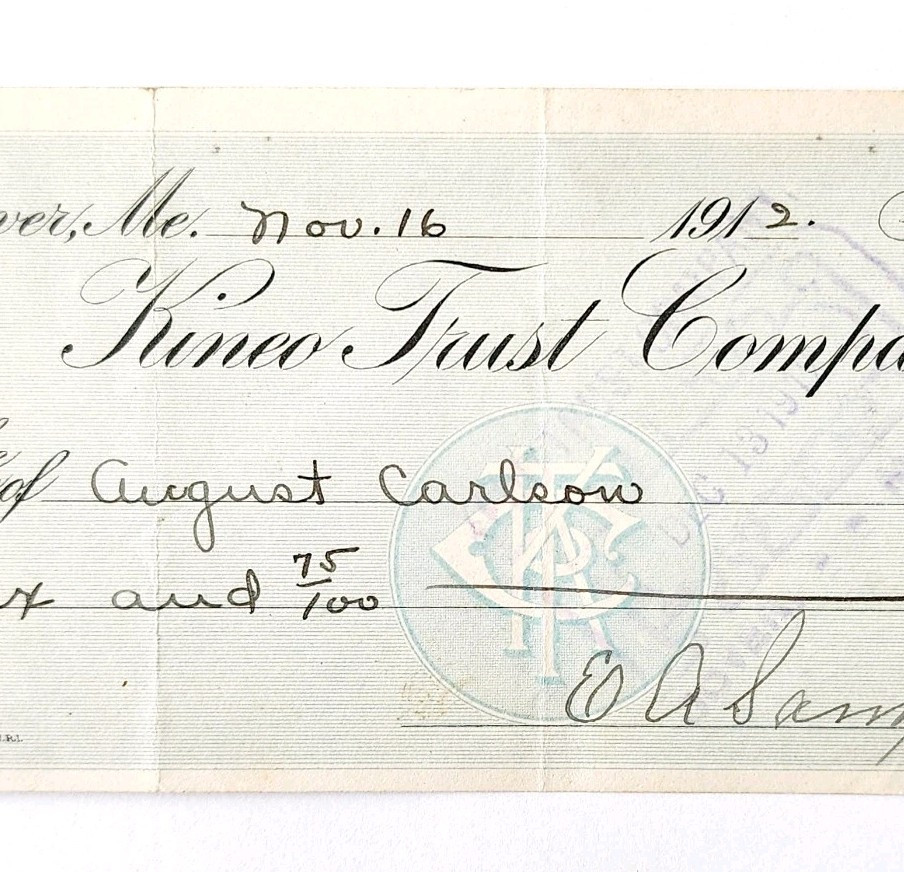 ver, Me. Nov. 16 1912.
Kineo Trust Compa
of August Carlson
x and 75/100
E A Samp